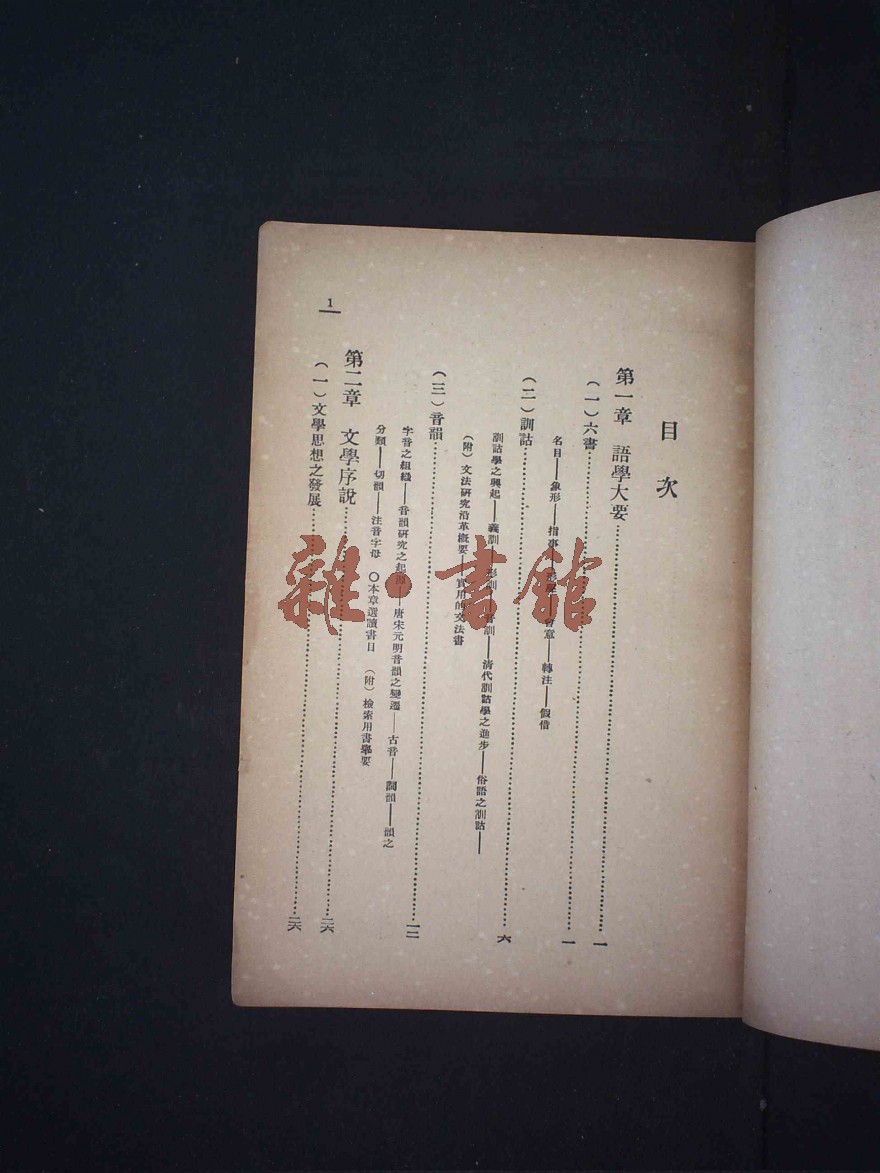 目次
第一章 語學大要……一
(一)六書……一
名目——象形——指事——會意——轉注——假借
(二)訓詁……六
訓詁學之興起——義訓——形訓——音訓——清代訓詁學之進步——俗語之訓詁——
(附)文法研究沿革概要——實用的文法書
(三)音韻……一二
字音之組織——音韻研究之起源——唐宋元明音韻之變遷——古音——詞韻——韻之
分類——切韻——注音字母 ○本章選讀書目 (附)檢索用書舉要
第二章 文學序說……二六
(一)文學思想之發展……二六
1
雜·書館